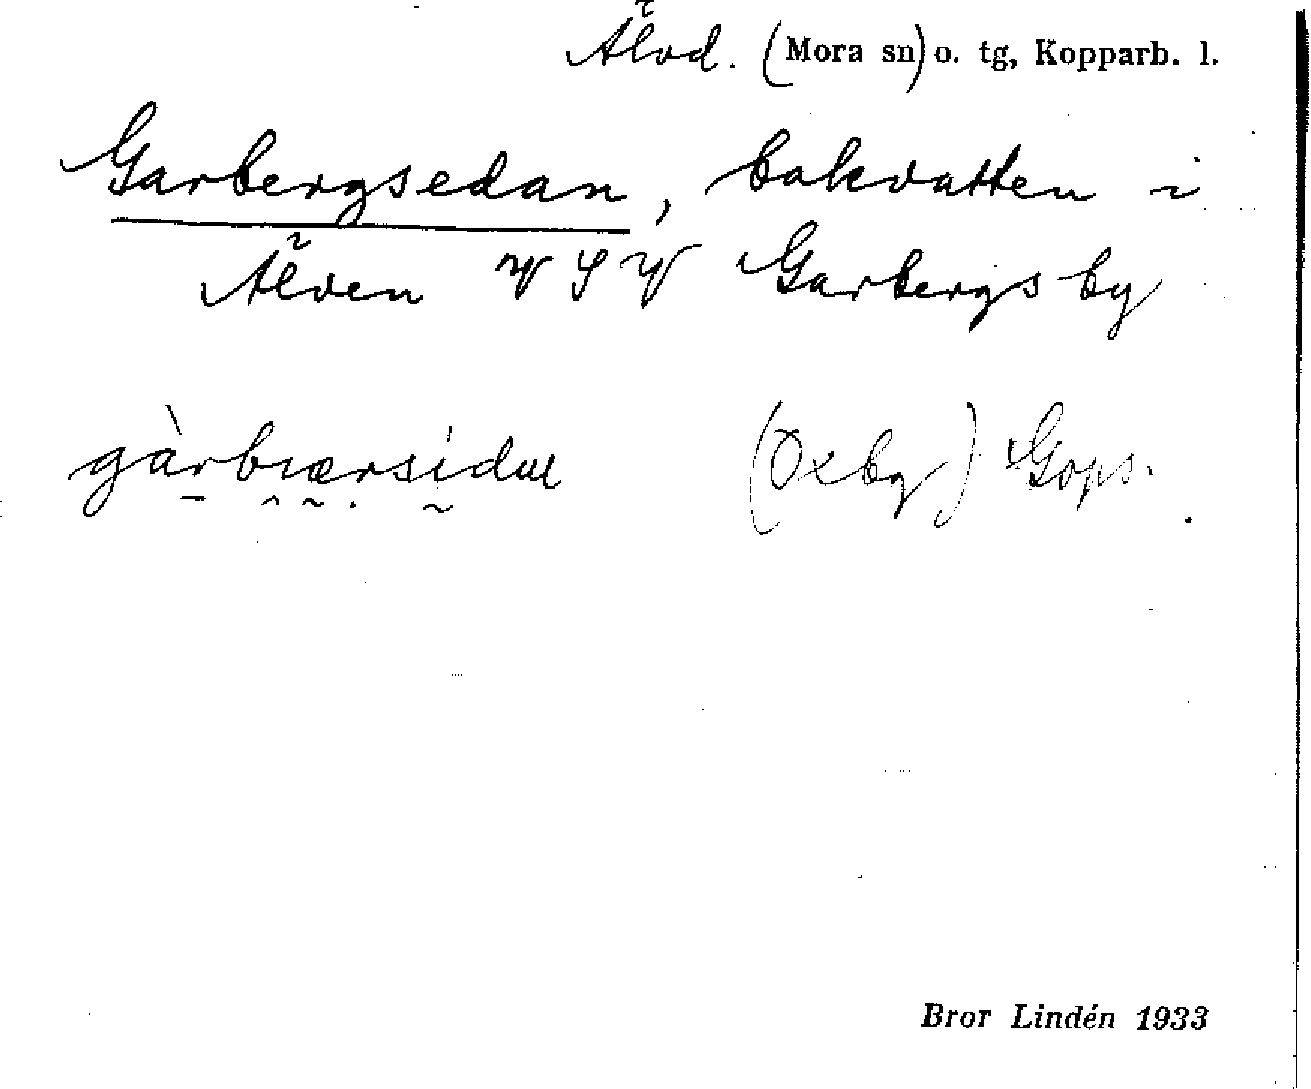 Älvd. (Mora sn) o. tg, Kopparb. l.
Garbergsedan, bakvatten i
Älven VSV Garbergs by
gàrbıærsidæ (Oxbg) Gops.
Bror Lindén 1933